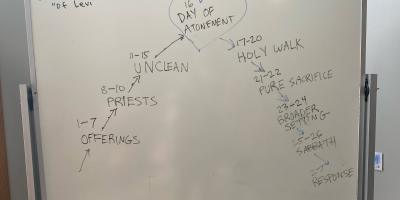 "of Levi
16
DAY OF
ATONEMENT
11-15
UNCLEAN
8-10
PRIESTS
1-7
OFFERINGS
17-20
HOLY WALK
21-22
PURE SACRIFICE
23-24
BROADER
SETTING
25-26
SABBATH
27
RESPONSE